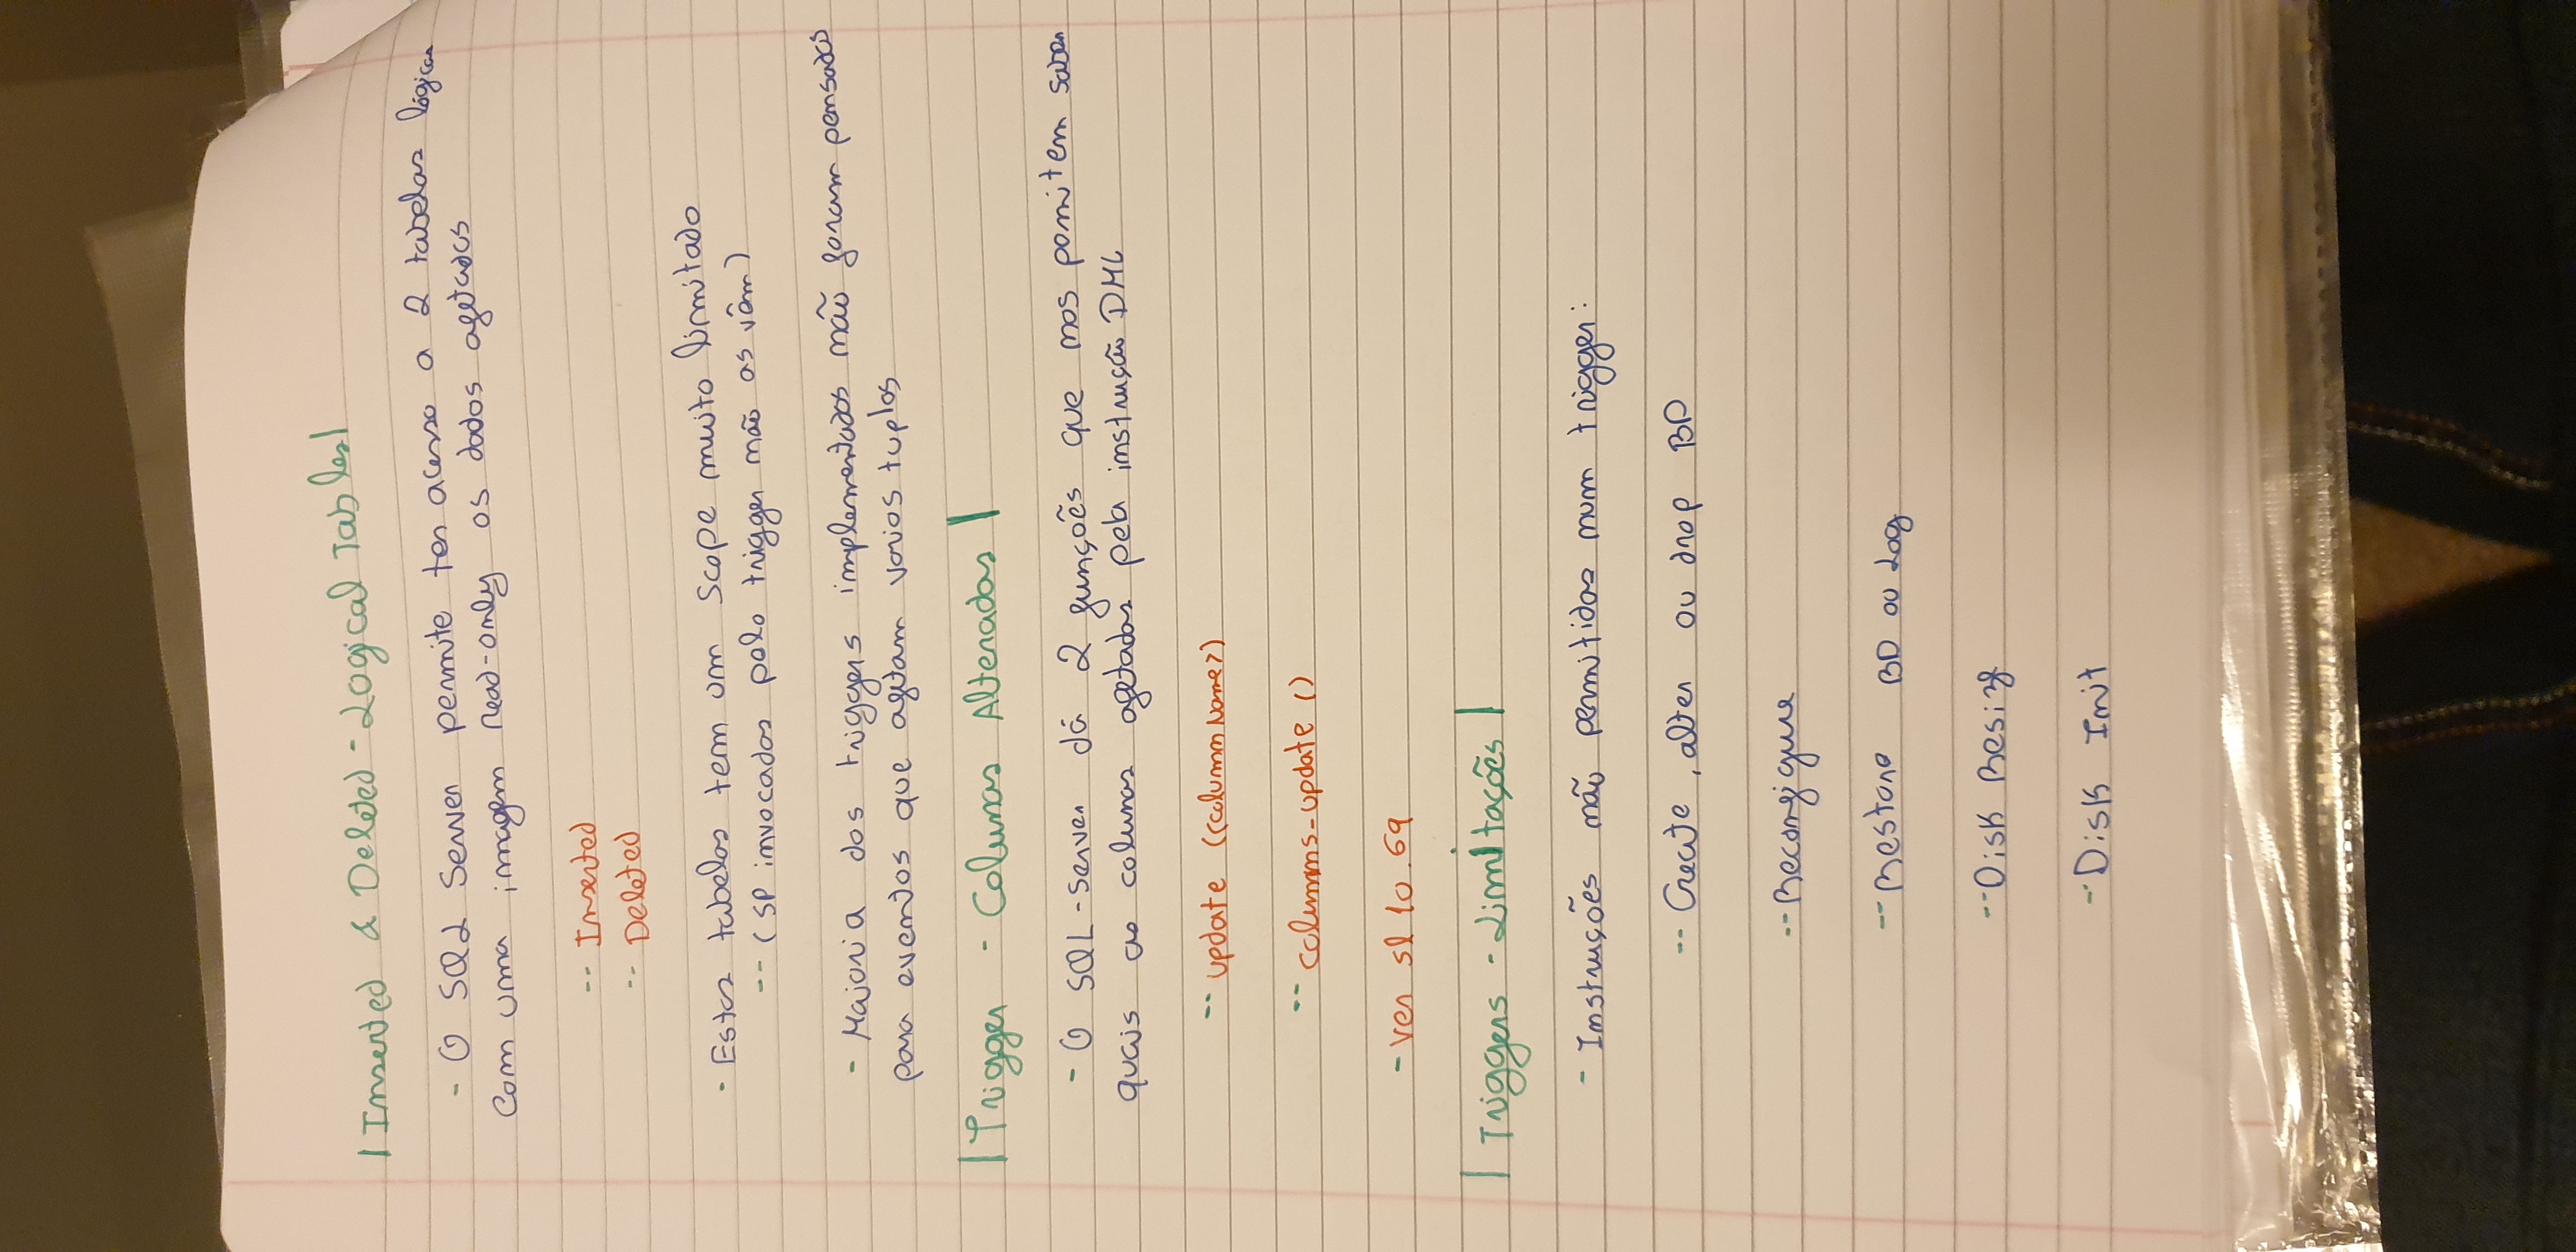 | Inserted & Deleted - Logical Tables |
- O SQL Server permite ter acesso a 2 tabelas lógicas
com uma imagem read-only os dados afetados
-- Inserted
-- Deleted
- Estas tabelas tem um scope muito limitado
-- (SP invocados pelo trigger não as vêm)
- Maioria dos triggers implementados não foram pensados
para eventos que afetam varios tuplos
| Trigger - Colunas Alteradas |
- O SQL-Server dá 2 funções que nos pomitem saber
quais as colunas afetadas pela instrução DML
-- update (<column Name>)
-- columns-update ()
- ver sl 10.69
| Triggers - Limitações |
- Instruções não permitidas num trigger:
-- Create, alter ou drop BD
-- Reconfigure
-- Restore BD ou Log
-- Disk Resize
-- Disk Init